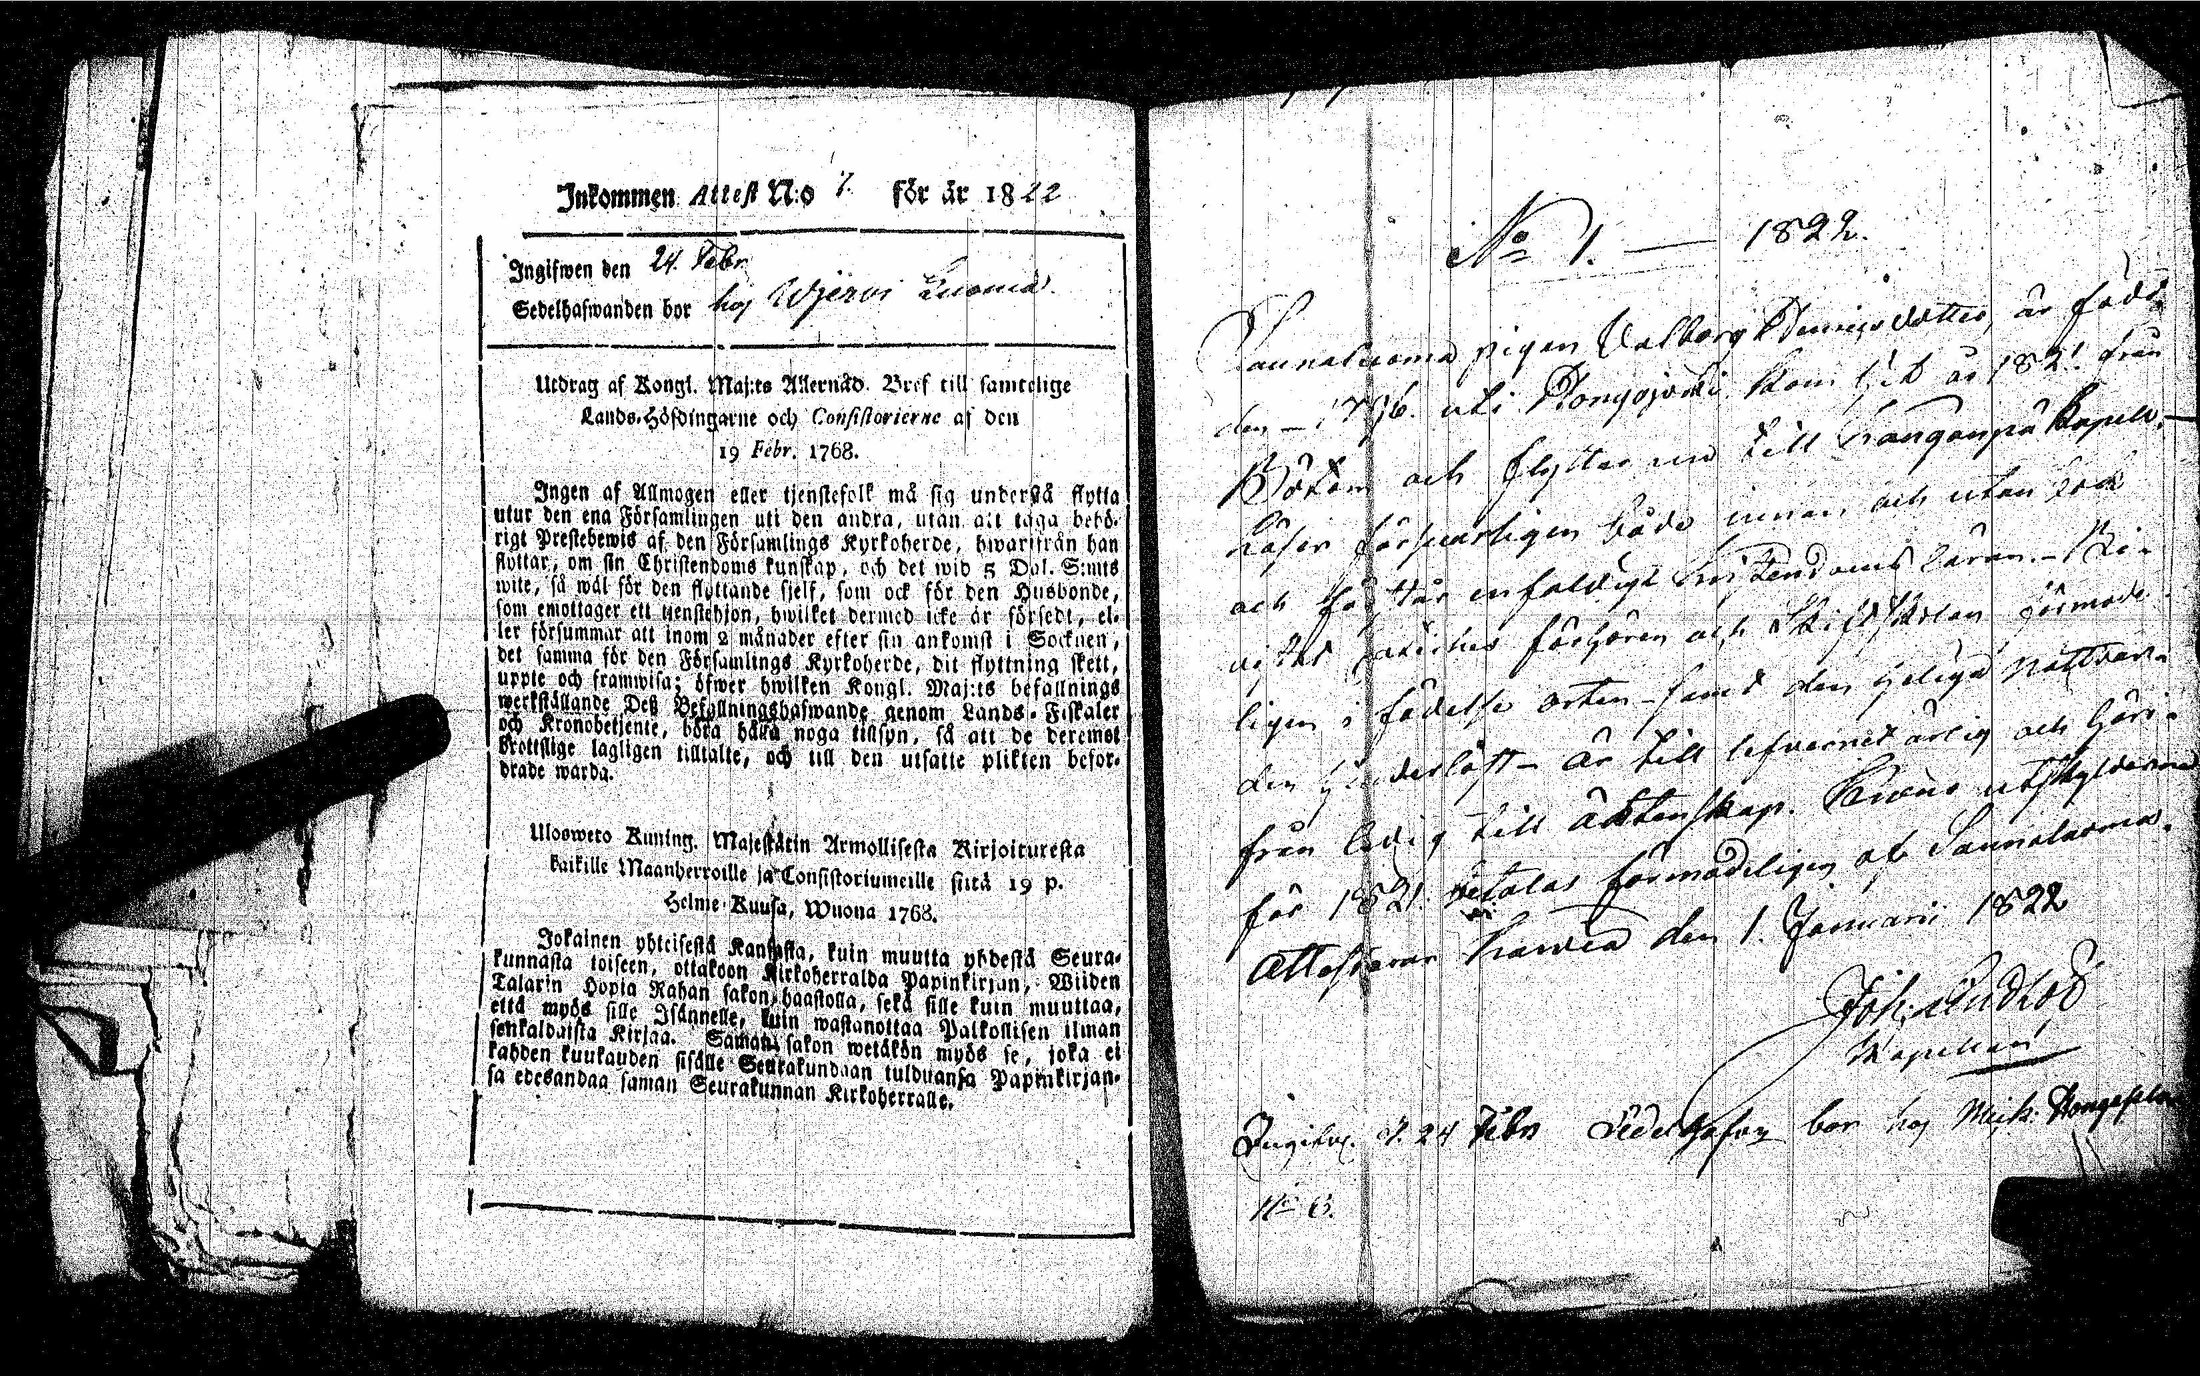 Inkommen Attest N:o 7. för år 1822
Ingifwen den 24. Febr
Sedelhafwanden bor hos Wjervi Luoma.
Utdrag af Kongl. Maj:ts Allernåd. Bref till samtelige
Lands-Höfdingarne och Consistorierne af den
19 Febr. 1768.
Ingen af Allmogen eller tjenstefolk må sig understå flytta
utur den ena Församlingen uti den andra, utan att taga behö-
rigt Prestebewis af den Församlings Kyrkoherde, hwarifrån han
flyttar, om sin Christendoms kunskap, och det wid 5 Dal. S:mts
wite, så wäl för den flyttande sjelf, som ock för den Husbonde,
som emottager ett tjenstehjon, hwilket dermed icke är försedt, el-
ler försummar att inom 2 månader efter sin ankomst i Socknen,
det samma för den Församlings Kyrkoherde, dit flyttning skett,
uppte och framwisa; öfwer hwilken Kongl. Maj:ts befallnings
werkställande Deß Befallningshafwande genom Lands-Fiskaler
och Kronobetjente, böra hålla noga tillsyn, så att de deremot
brottslige lagligen tilltalte, och till den utsatte plikten befor-
drade warda.
Ulosweto Kuning. Majestätin Armollisesta Kirjoituresta
kaikille Maanherroille ja Consistoriumeille siitä 19 p.
Helme-Kuusa, Wuona 1768.
Jokainen yhteisestä Kansasta, kuin muutta yhdestä Seura-
kunnasta toiseen, ottakoon Kirkoherralda Papinkirjan, Wiiden
Talarin Hopia Rahan sakon haastolla, sekä sille kuin muuttaa,
että myös sille Isännelle, kuin wastanottaa Palkollisen ilman
senkaldaista Kirjaa. Saman sakon wetäkön myös se, joka ei
kahden kuukauden sisälle Seurakundaan tulduansa Papinkirjan-
sa edesandaa saman Seurakunnan Kirkoherralle.
No 1. — 1822.
Saunaluoma pigan Valborg Thomasdotter, är född
den — 1796. uti Kongojocki kom hit år 1821 från
Bötom och flyttar nu till Kangonpä Kapell.
Läser försvarligen både innan och utan bok
och förstår enfaldigt Christendoms läran. — Be-
vistat förhören och Skriftskolan förmode-
ligen i födelse orten — samt den heliga nattvar-
den — är till lefvernet ärlig och håri-
från ledig till äktenskap. Krono utskylderna
för 1821. betalas förmodeligen af Saunaluoma.
Attesterar Karvia den 1. Januarii 1822
Joh.
Kapellan
Ingifv. d. 24 Febr Sedelhafv bor hos Mich.
No 6.